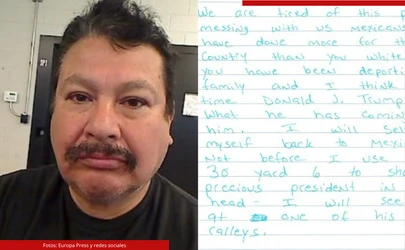 We are tired of this p
messing with us mexicans
have done more for th
Country than you white
you have been deporti
family and I think
time Donald J. Trump
What he has coming
him. I will Sel
myself back to mexi
Not before I use
30 yard 6 to sh
precious president in
head - I will see
at one of his
ralleys.
Fotos: Europa Press y redes sociales